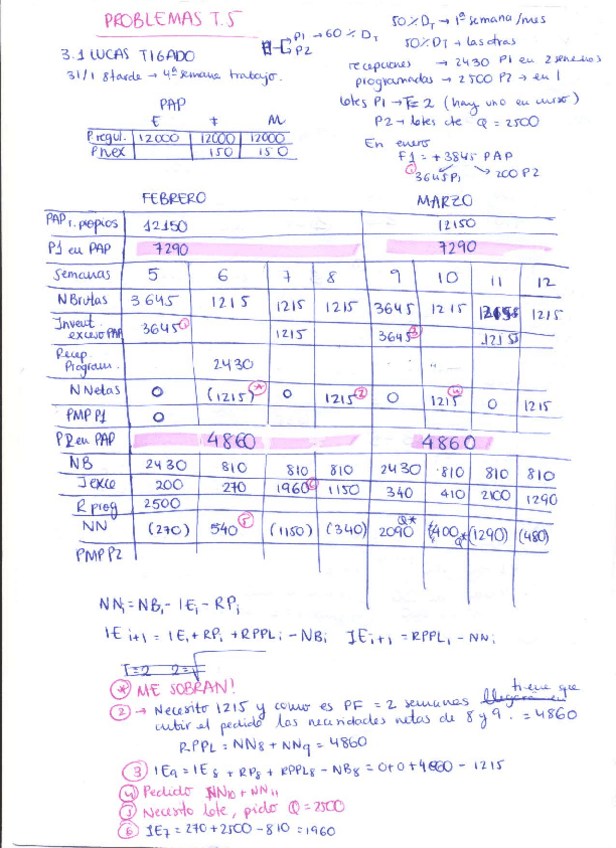 PROBLEMAS T.5
P1 → 60% DT
P2
50% DT → 1ª semana/mes
50% DT → las otras
recepciones → 2430 P1 en 2 semanas
programadas → 2500 P2 → en 1
3.1 LUCAS TIGADO
31/1 8tarde → 4ª semana trabajo.
lotes P1 → T=2 (hay uno en curso)
P2 → lotes cte Q = 2500
En enero
F1 = +3845 PAP
① 3645 P1 200 P2
PAP
E F M
P regul. 12000 12000 12000
P nex 150 150
FEBRERO MARZO
PAP r. propios 12150 12150
P1 en PAP 7290 7290
semanas 5 6 7 8 9 10 11 12
N Brutas 3645 1215 1215 1215 3645 1215 1215 1215
Invent. exceso PAP 3645 ① 1215 3645 ③ 1215
Recep. Program. 2430
N Netas 0 (1215) * 0 1215 ② 0 1215 ④ 0 1215
PMP P1 0
P2 en PAP 4860 4860
NB 2430 810 810 810 2430 810 810 810
I exce 200 270 1960 ⑥ 1150 340 410 2100 1290
R prog 2500
NN (270) 540 ⑤ (1150) (340) 2090 Q* 400 Q* (1290) (480)
PMP P2
NNi = NBi - IEi - RPi
IE i+1 = IEi + RPi + RPPLi - NBi IE i+1 = RPPLi - NNi
T=2
* ME SOBRAN!
② → Necesito 1215 y como es PF = 2 semanas tiene que
cubrir el pedido las necesidades netas de 8 y 9. = 4860
RPPL = NN8 + NN9 = 4860
③ IE9 = IE8 + RP8 + RPPL8 - NB8 = 0+0+4860 - 1215
④ Pedido NN10 + NN11
⑤ Necesito lote, pido Q = 2500
⑥ IE7 = 270 + 2500 - 810 = 1960